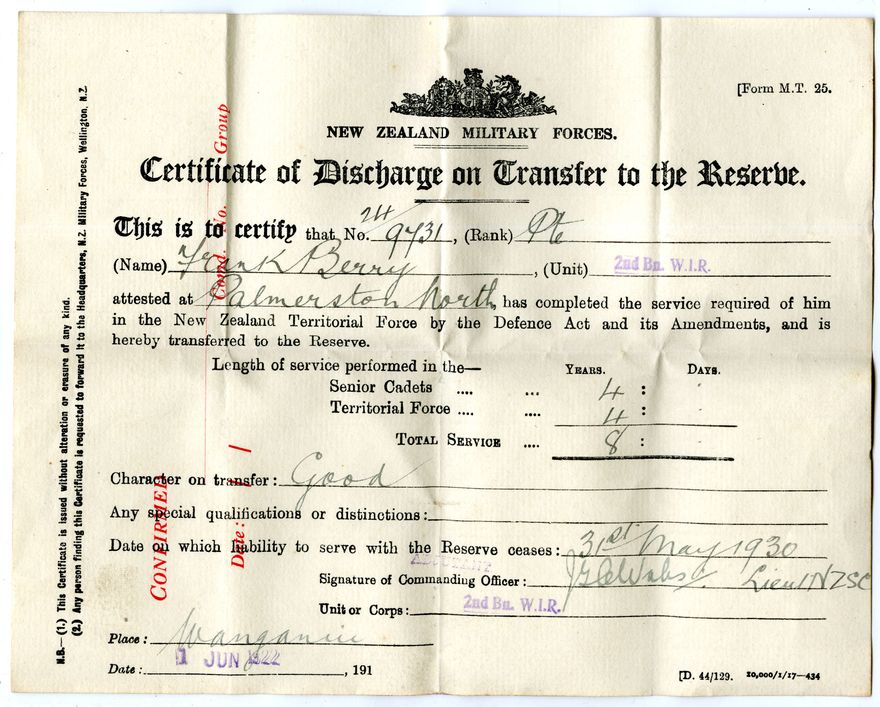 [Form M.T. 25.
NEW ZEALAND MILITARY FORCES.
Certificate of Discharge on Transfer to the Reserve.
This is to certify that No. 24/9731, (Rank) Pte
(Name) Frank Berry, (Unit) 2nd Bn. W.I.R.
attested at Palmerston North, has completed the service required of him
in the New Zealand Territorial Force by the Defence Act and its Amendments, and is
hereby transferred to the Reserve.
Length of service performed in the— YEARS. DAYS.
Senior Cadets .... ... 4 :
Territorial Force .... .... 4 :
TOTAL SERVICE .... 8 :
Character on transfer: Good
Any special qualifications or distinctions:
Date on which liability to serve with the Reserve ceases: 31st May 1930
ADJUTANT
Signature of Commanding Officer: Lieut NZSC
Unit or Corps: 2nd Bn. W.I.R.
Place: Wanganui
Date: 1 JUN 1922, 191
[D. 44/129. 10,000/1/17—434
N.B.—(1.) This Certificate is issued without alteration or erasure of any kind.
(2.) Any person finding this Certificate is requested to forward it to the Headquarters, N.Z. Military Forces, Wellington, N.Z.
CONFIRMED
Comd. No. Group
Date: / /